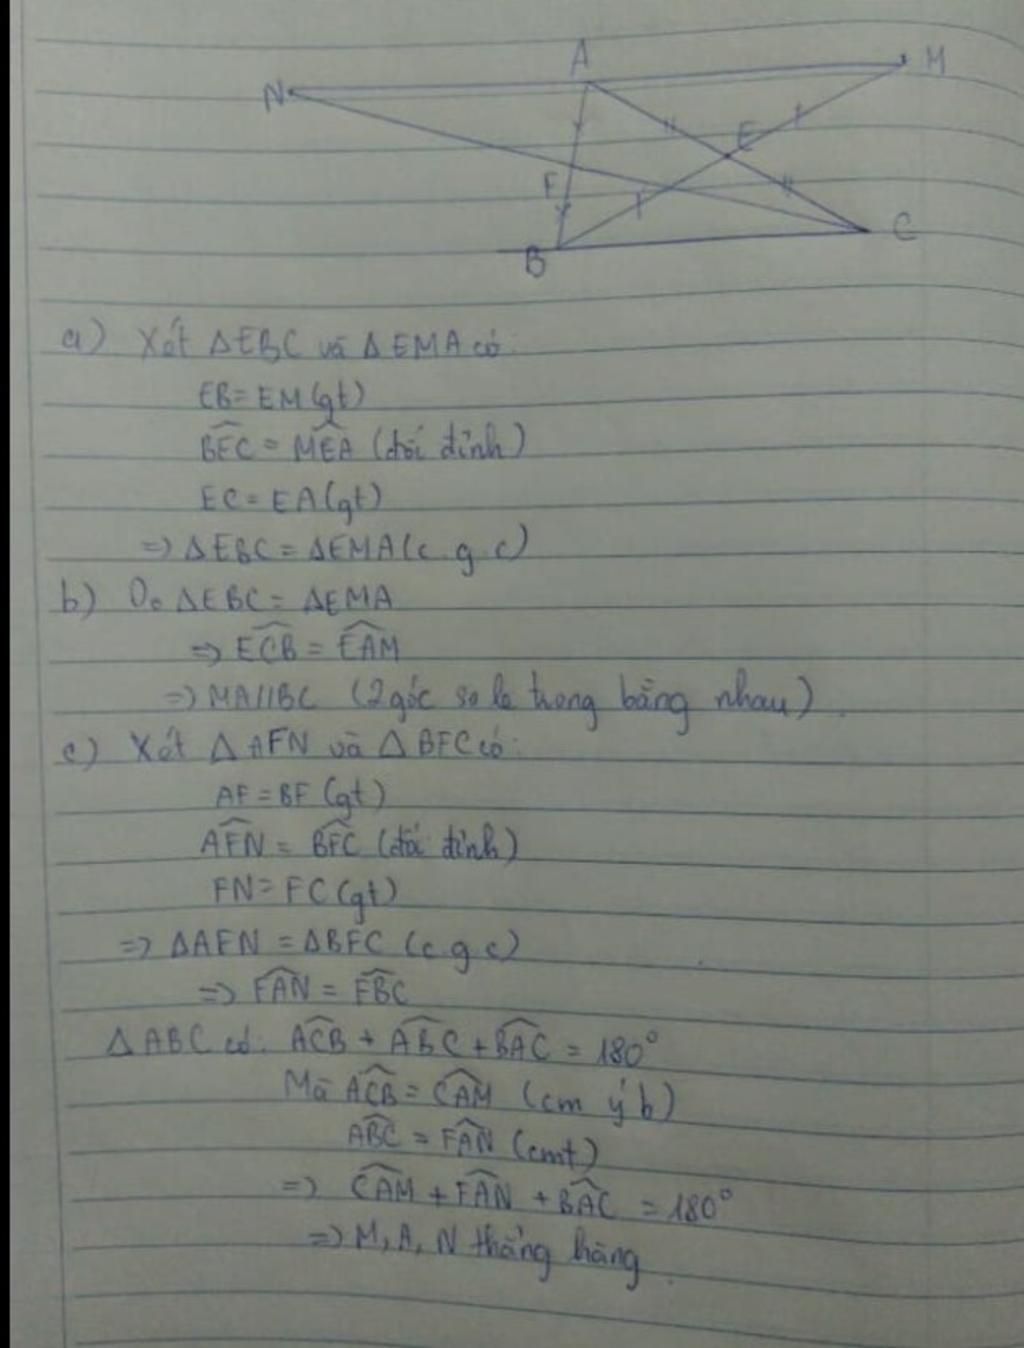 A
M
N
E
F
C
B
a) Xét ΔEBC và ΔEMA có:
EB = EM (gt)
$\widehat{BEC}$ = $\widehat{MEA}$ (đối đỉnh)
EC = EA (gt)
=> ΔEBC = ΔEMA (c.g.c)
b) Do ΔEBC = ΔEMA
=> $\widehat{ECB}$ = $\widehat{EAM}$
=> MA//BC (2 góc so le trong bằng nhau).
c) Xét ΔAFN và ΔBFC có:
AF = BF (gt)
$\widehat{AFN}$ = $\widehat{BFC}$ (đối đỉnh)
FN = FC (gt)
=> ΔAFN = ΔBFC (c.g.c)
=> $\widehat{FAN}$ = $\widehat{FBC}$
ΔABC có: $\widehat{ACB}$ + $\widehat{ABC}$ + $\widehat{BAC}$ = 180°
Mà $\widehat{ACB}$ = $\widehat{CAM}$ (cm ý b)
$\widehat{ABC}$ = $\widehat{FAN}$ (cmt)
=> $\widehat{CAM}$ + $\widehat{FAN}$ + $\widehat{BAC}$ = 180°
=> M, A, N thẳng hàng.